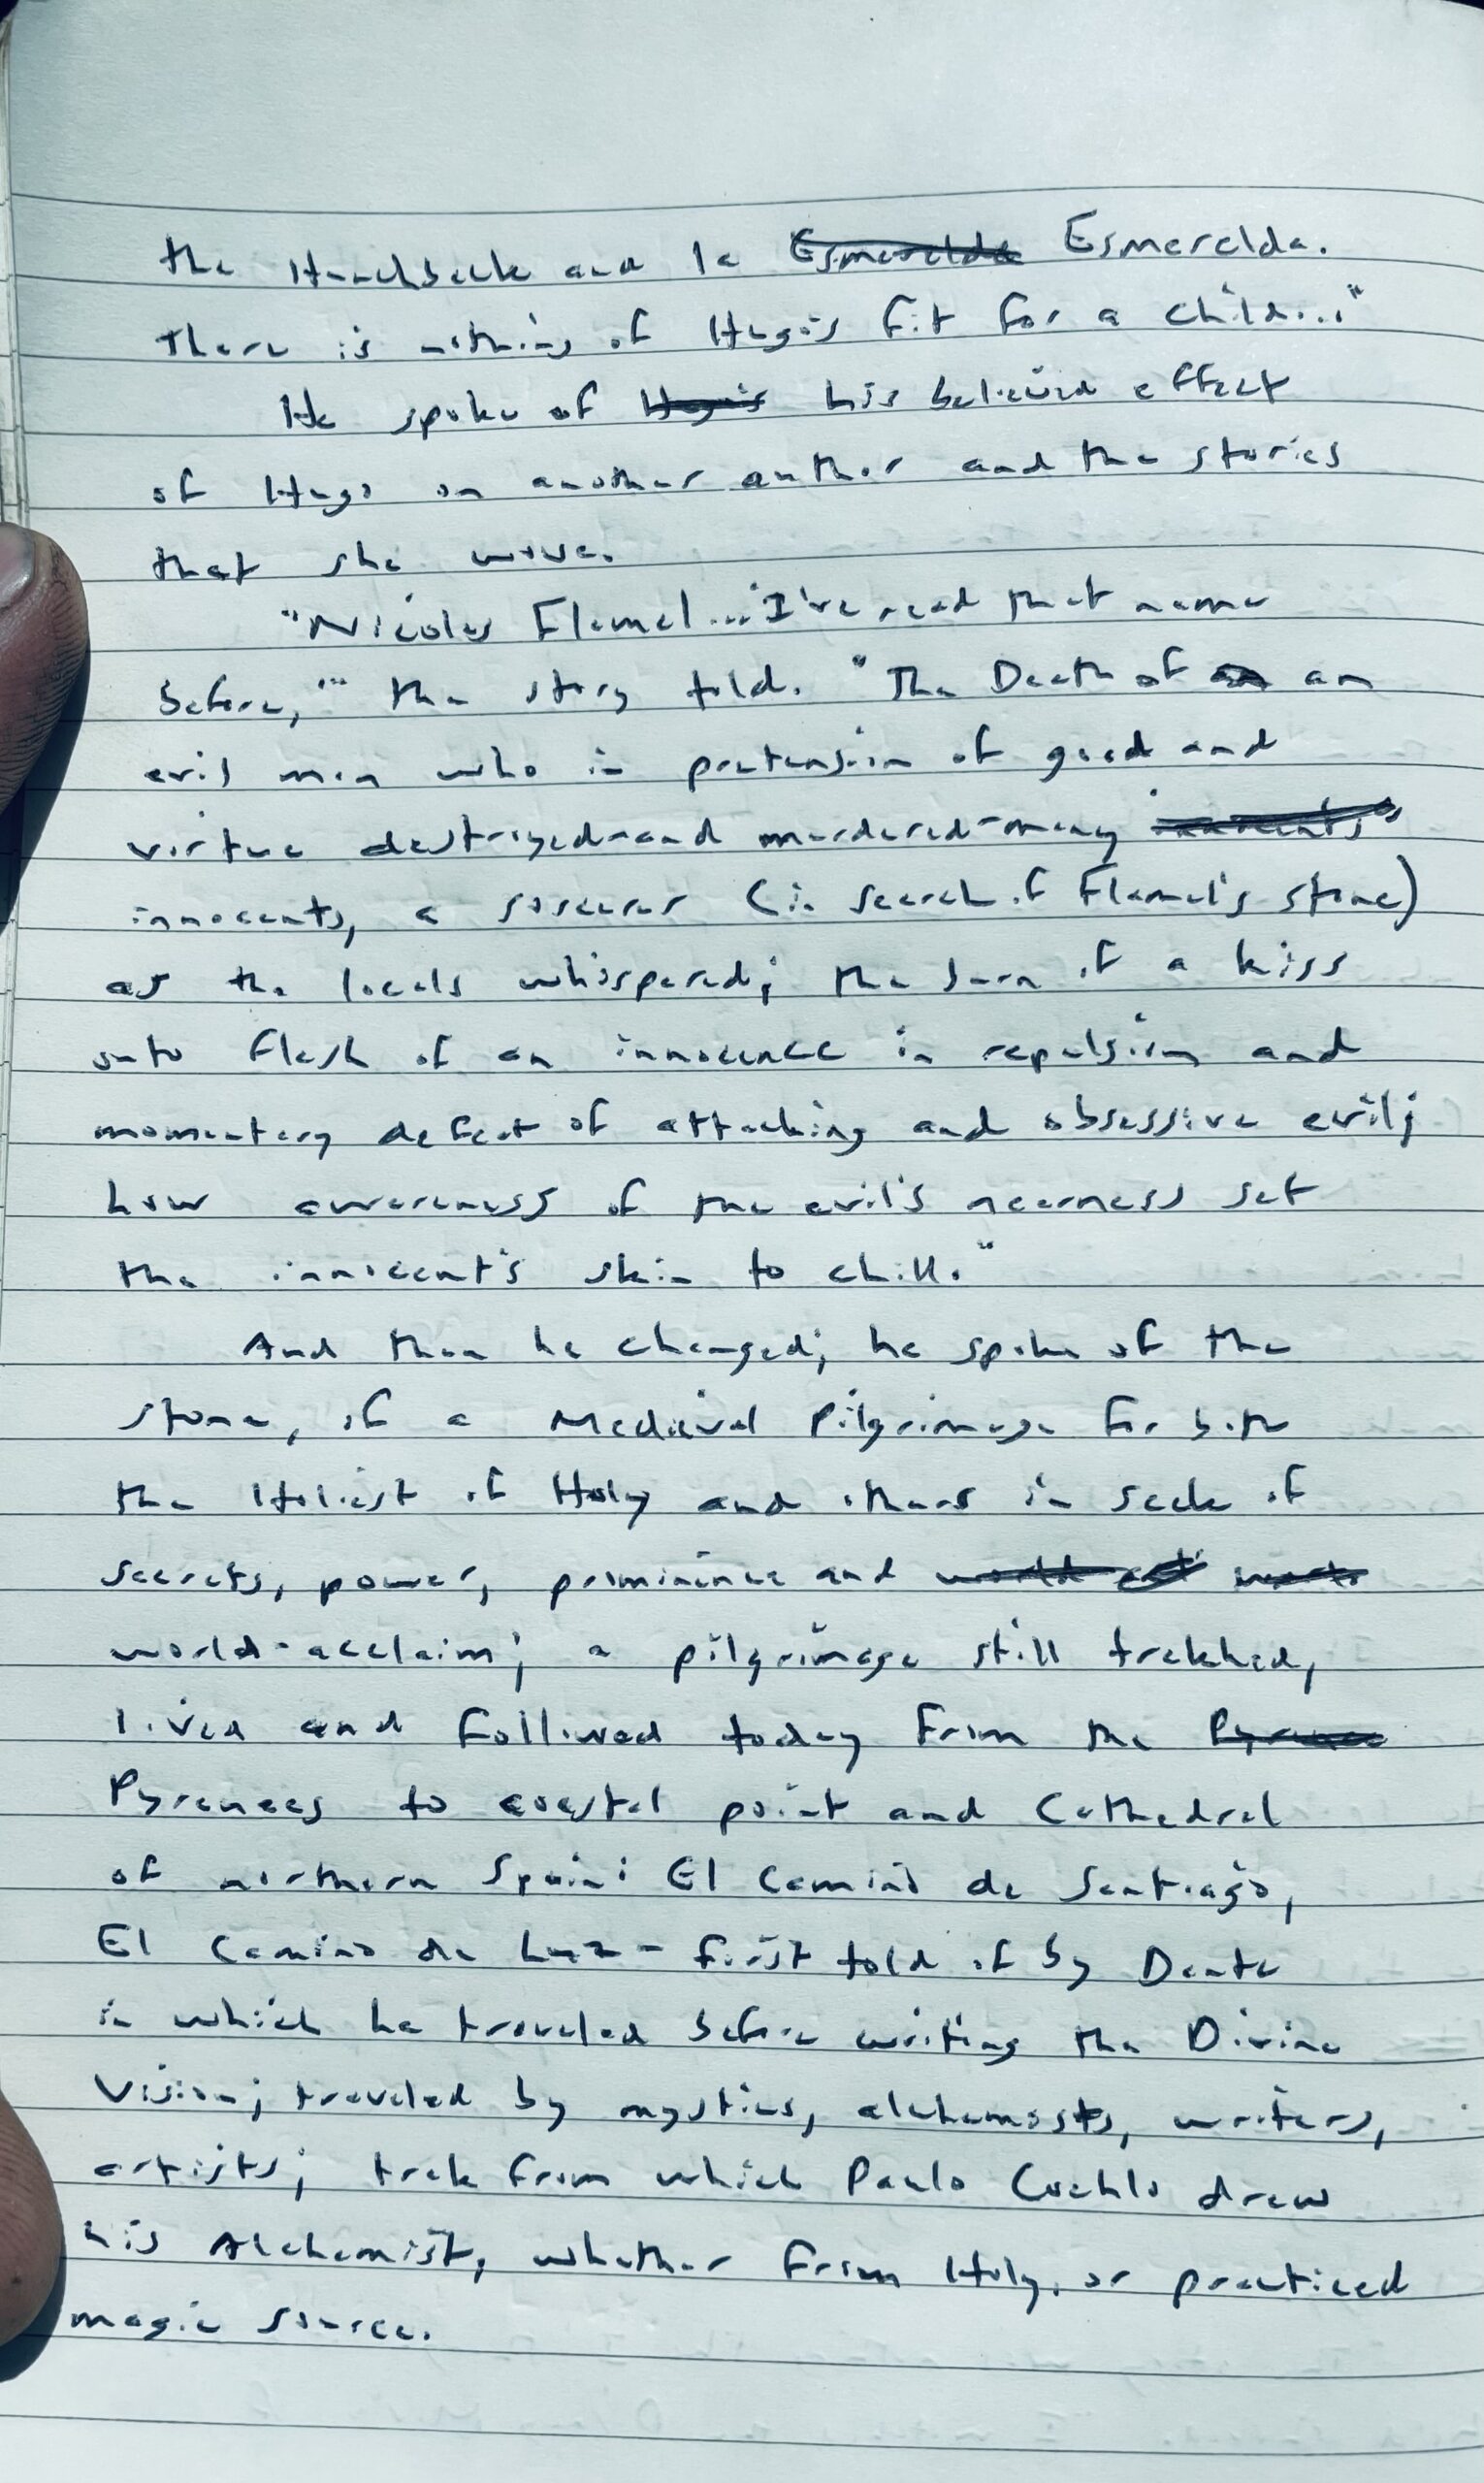 the Hunchback and la Esmerelda Esmerelda.
There is nothing of Hugo's fit for a child..."
He spoke of Hugo's his believed effect
of Hugo on another author and the stories
that she wove.
"'Nicolas Flamel...I've read that name
before,'" the story told. "The Death of an an
evil man who in pretension of good and
virtue destroyed-and murdered-many innocents
innocents, a sorcerer (in search of Flamel's stone)
as the locals whispered; the burn of a kiss
onto flesh of an innocence in repulsion and
momentary defeat of attacking and obsessive evil;
how awareness of the evil's nearness set
the innocent's skin to chill."
And then he changed; he spoke of the
stone, of a Medieval Pilgrimage for both
the Holiest of Holy and others in seek of
secrets, power, prominence and world
world-acclaim; a pilgrimage still trekked,
lived and followed today from the Pyrenee
Pyrenees to coastal point and Cathedral
of northern Spain: El Camino de Santiago,
El Camino de Luz - first told of by Dante
in which he traveled before writing the Divine
Vision; traveled by mystics, alchemists, writers,
artists; trek from which Paulo Coehlo drew
his Alchemist, whether from Holy, or practiced
magic source.